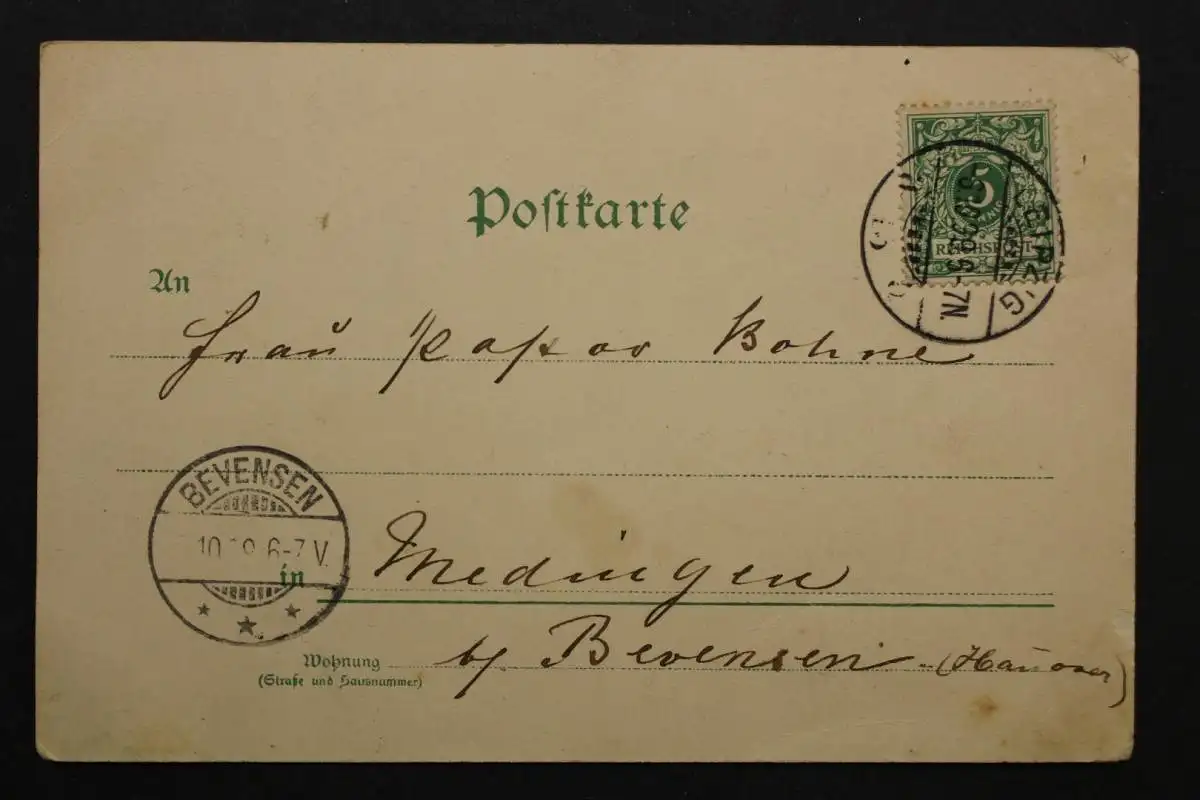 Postkarte
5
REICHSPOST
LEIPZIG
6-7N.
An
Frau Pastor Bohne
BEVENSEN
10. 6-7 V.
in Medingen
Wohnung b/ Bevensen (Hannover)
(Straße und Hausnummer)